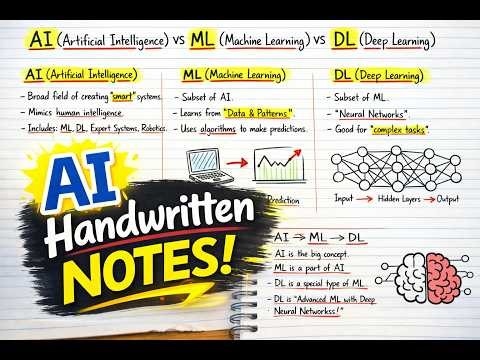 AI (Artificial Intelligence) vs ML (Machine Learning) vs DL (Deep Learning)
AI (Artificial Intelligence)
- Broad field of creating "smart" systems.
- Mimics human intelligence.
- Includes: ML, DL, Expert Systems, Robotics.
ML (Machine Learning)
- Subset of AI.
- Learns from "Data & Patterns".
- Uses algorithms to make predictions.
Prediction
DL (Deep Learning)
- Subset of ML.
- "Neural Networks".
- Good for "complex tasks".
Input → Hidden Layers → Output
AI
Handwritten
NOTES!
AI → ML → DL
AI is the big concept.
ML is a part of AI
- DL is a special type of ML
- DL is "Advanced ML with Deep
Neural Networkss!"